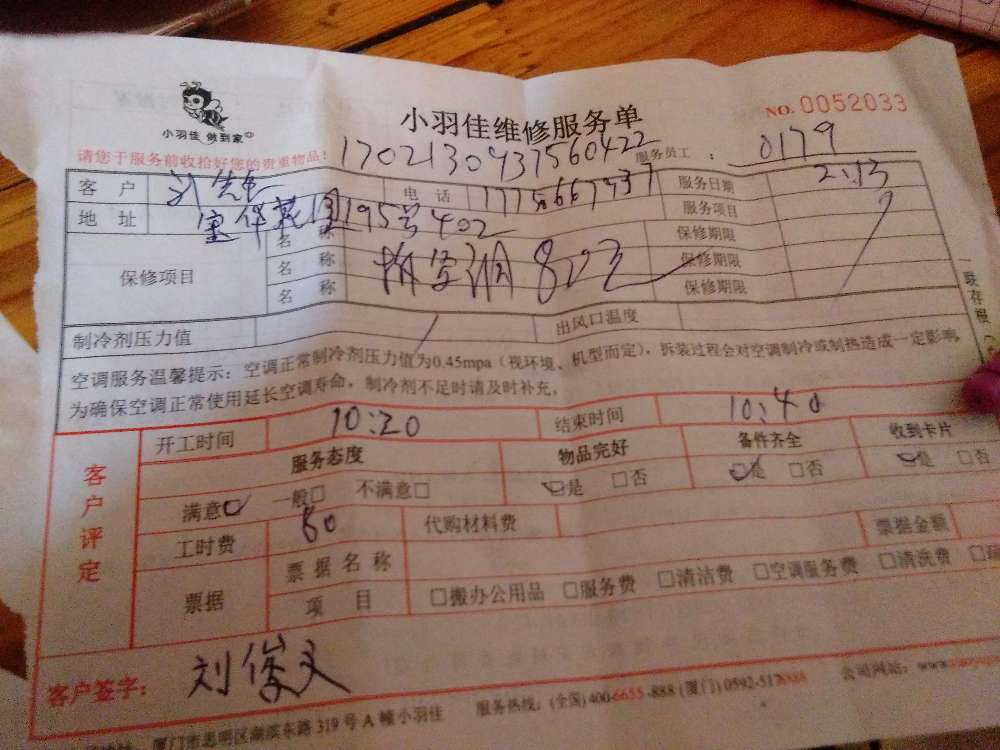 小羽佳 做到家
小羽佳维修服务单
NO. 0052033
请您于服务前收拾好您的贵重物品: 170213093756042
服务员工: 0179
客户 刘先生 电话 服务日期 2.13
地址 195号402 服务项目
保修项目 名称 保修期限
名称 拆空调 80元 保修期限
名称 保修期限
一联存根
制冷剂压力值 出风口温度
空调服务温馨提示:空调正常制冷剂压力值为0.45mpa(视环境、机型而定),拆装过程会对空调制冷或制热造成一定影响,
为确保空调正常使用延长空调寿命,制冷剂不足时请及时补充。
客户评定
开工时间 10:20 结束时间 10:40
服务态度 物品完好 备件齐全 收到卡片
满意☑ 一般□ 不满意□ ☑是 □否 ☑是 □否 ☑是 □否
工时费 80 代购材料费 票据金额
票据 票据名称
项目 □搬办公用品 □服务费 □清洁费 □空调服务费 □清洗费
客户签字: 刘俊文
厦门市思明区湖滨东路319号A幢小羽佳 服务热线:(全国)400-6655-888 (厦门)0592-517 公司网站:www.